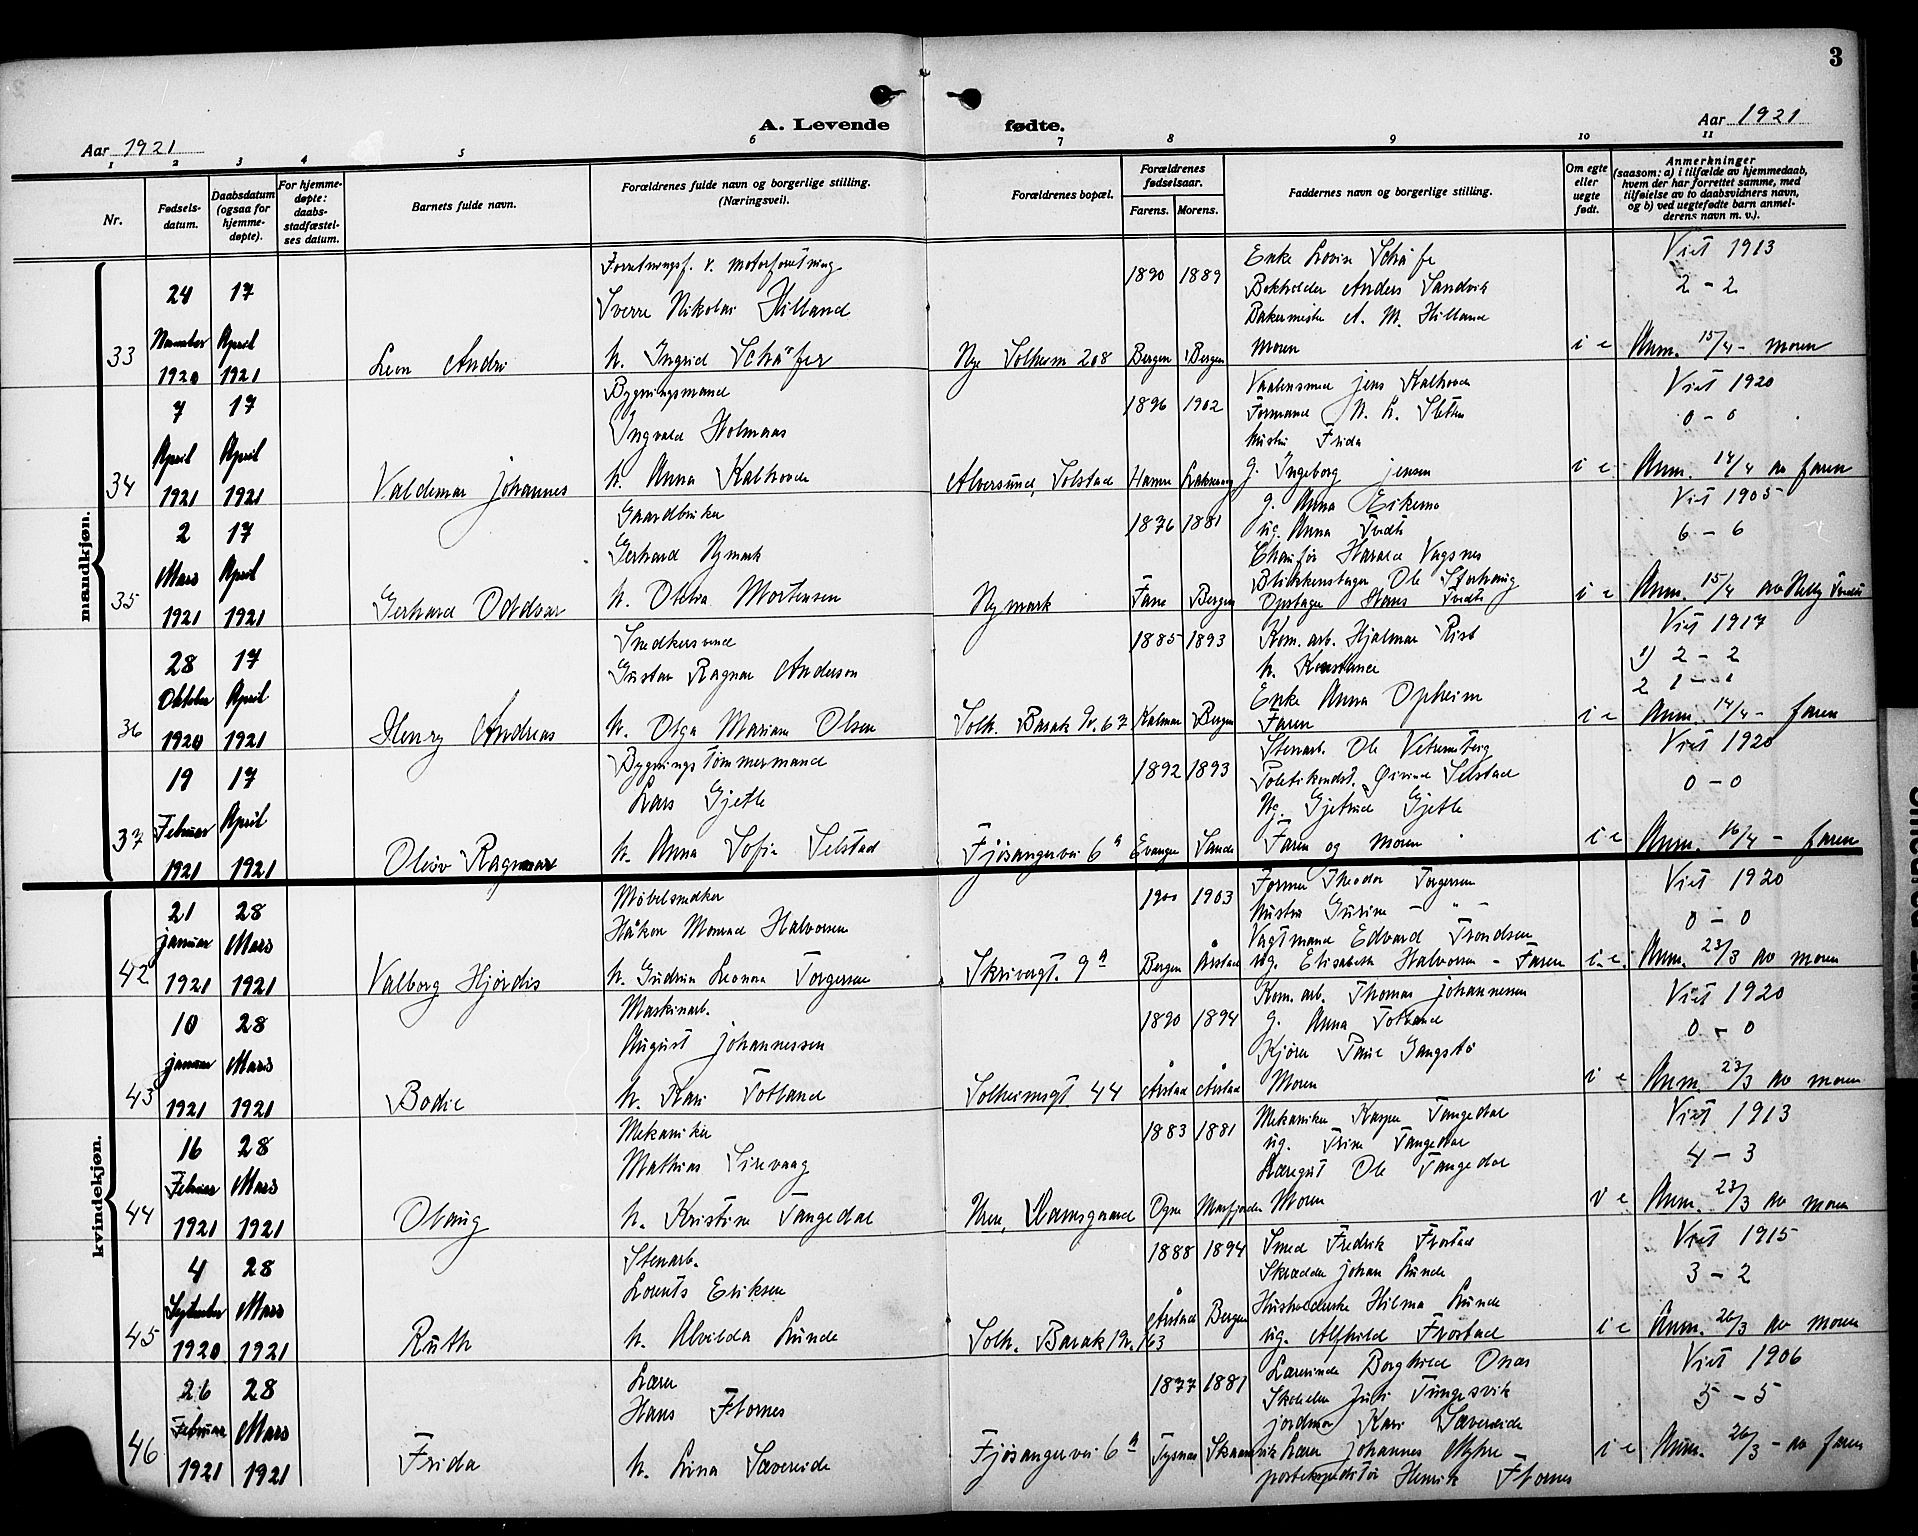 3
A. Levende fødte.
Aar 1921
Aar 1921
1 2 3 4 5 6 7 8 9 10 11
Nr.
Fødsels-
datum.
Daabsdatum
(ogsaa for
hjemme-
døpte).
For hjemme-
døpte:
daabs-
stadfæstel-
ses datum.
Barnets fulde navn.
Forældrenes fulde navn og borgerlige stilling.
(Næringsvei).
Forældrenes bopæl.
Forældrenes
fødselsaar.
Farens. Morens.
Faddernes navn og borgerlige stilling.
Om egte
eller
uegte
født.
Anmerkninger
(saasom: a) i tilfælde av hjemmedaab,
hvem der har forrettet samme, med
tilføielse av to daabsvidners navn,
og b) ved uegtefødte barn anmel-
derens navn m. v.).
mandkjøn.
33
24 November 1920
17 April 1921
Leon André
Forretningsf. v. Motorforretning
Sverre Nikolai Hilland
h. Ingrid Schäfer
Nye Solheim 208
1890 1889
Bergen Bergen
Enke Lovise Schäfer
Bokholder Anders Sandvik
Bakermester A. M. Hilland
Moren
i e
Viet 1913
2 - 2
Anm. 15/4 - moren
34
7 April 1921
17 April 1921
Valdemar Johannes
Bygningsmand
Ingvald Holmaas
h. Anna Kalhovde
Alversund, Solstad
1896 1902
Hamre
Jens Kalhovde
Formand
hustru Frida
g. Ingeborg Jensen
i e
Viet 1920
0 - 0
Anm. 14/4 av faren
35
2 Mars 1921
17 April 1921
Gerhard Oddvar
Gaardbruker
Gerhard Nymark
h. Oletra Mortensen
Nymark
1876 1881
Fane Bergen
g. Anna Eikemo
ug. Anna Tvedt
Chaufør Harald Vagsnes
Ole Storhaug
Opsitter Hans Tvedt
i e
Viet 1905
6 - 6
Anm. 15/4 av Nelly Tvedt
36
28 Oktober 1920
17 April 1921
Henry Andreas
Snedkersvend
Gustav Ragnar Anderson
h. Olga Mariane Olsen
Solh. Barak Nr. 67
1885 1893
Kalmar Bergen
Kom. arb. Hjalmar Risb
h. Konstance
Enke Anna Opheim
Faren
i e
Viet 1917
1) 2 - 2
2 1 - 1
Anm. 14/4 - faren
37
19 Februar 1921
17 April 1921
Oleiv Ragnar
Bygningstømmermand
Lars Gjetle
h. Anna Sofie Selstad
Fjøsangervei 6a
1892 1893
Evanger Sande
Stenarb. Ole
Politikonst. Øivind Selstad
Ug. Gjetrud Gjetle
Faren og moren
i e
Viet 1920
0 - 0
Anm. 16/4 - faren
kvindekjøn.
42
21 Januar 1921
28 Mars 1921
Valborg Hjørdis
Møbelsnedker
Håkon Monrad Halvorsen
h. Gudrun Leonora Torgersen
Skrivergt. 9a
1900 1903
Bergen Årstad
Former Theodor Torgersen
Hustru Gurine - " -
Vagtmand Edvard Trondsen
ug. Elisabeth Halvorsen - Faren
i e.
Viet 1920
0 - 0
Anm. 23/3 av moren
43
10 Januar 1921
28 Mars 1921
Bodil
Maskinarb.
August Johannessen
h. Kari Totland
Solheimsgt. 44
1890 1894
Årstad Årstad
Kom. arb. Thomas Johannessen
g. Anna Totland
Kjører Paul Gangstø
Moren
i e
Viet 1920
0 - 0
Anm. 23/3 av moren
44
16 Februar 1921
28 Mars 1921
Olaug
Mekaniker
Mathias Sirevaag
h. Kristine Tangedal
Uren, Damsgaard
1883 1881
Ogne Masfjorden
Mekaniker Kasper Tangedal
ug. Trine Tangedal
Læregut Ole Tangedal
Moren
i e
Viet 1913
4 - 3
Anm. 23/3 av moren
45
4 September 1920
28 Mars 1921
Ruth
Stenarb.
Lorents Eriksen
h. Alvilda Lunde
Solh. Barak Nr. 163
1888 1894
Årstad Bergen
Smed Fredrik Frostad
Skrædder Johan Lunde
Husholderske Hilma Lunde
ug. Alfhild Frostad
i e
Viet 1915
3 - 2
Anm. 26/3 av moren
46
26 Februar 1921
28 Mars 1921
Frida
Lærer
Hans Flornes
h. Lina Sævereide
Fjøsangervei 6a
1877 1881
Tysnes Skaanevik
Lærerinde Borghild Onar
Juli Tungesvik
Jordmor Kari Sævereide
Lærer Johannes Myhre -
postekspeditør Henrik Flornes
i e
Viet 1906
5 - 5
Anm. 26/3 - av faren